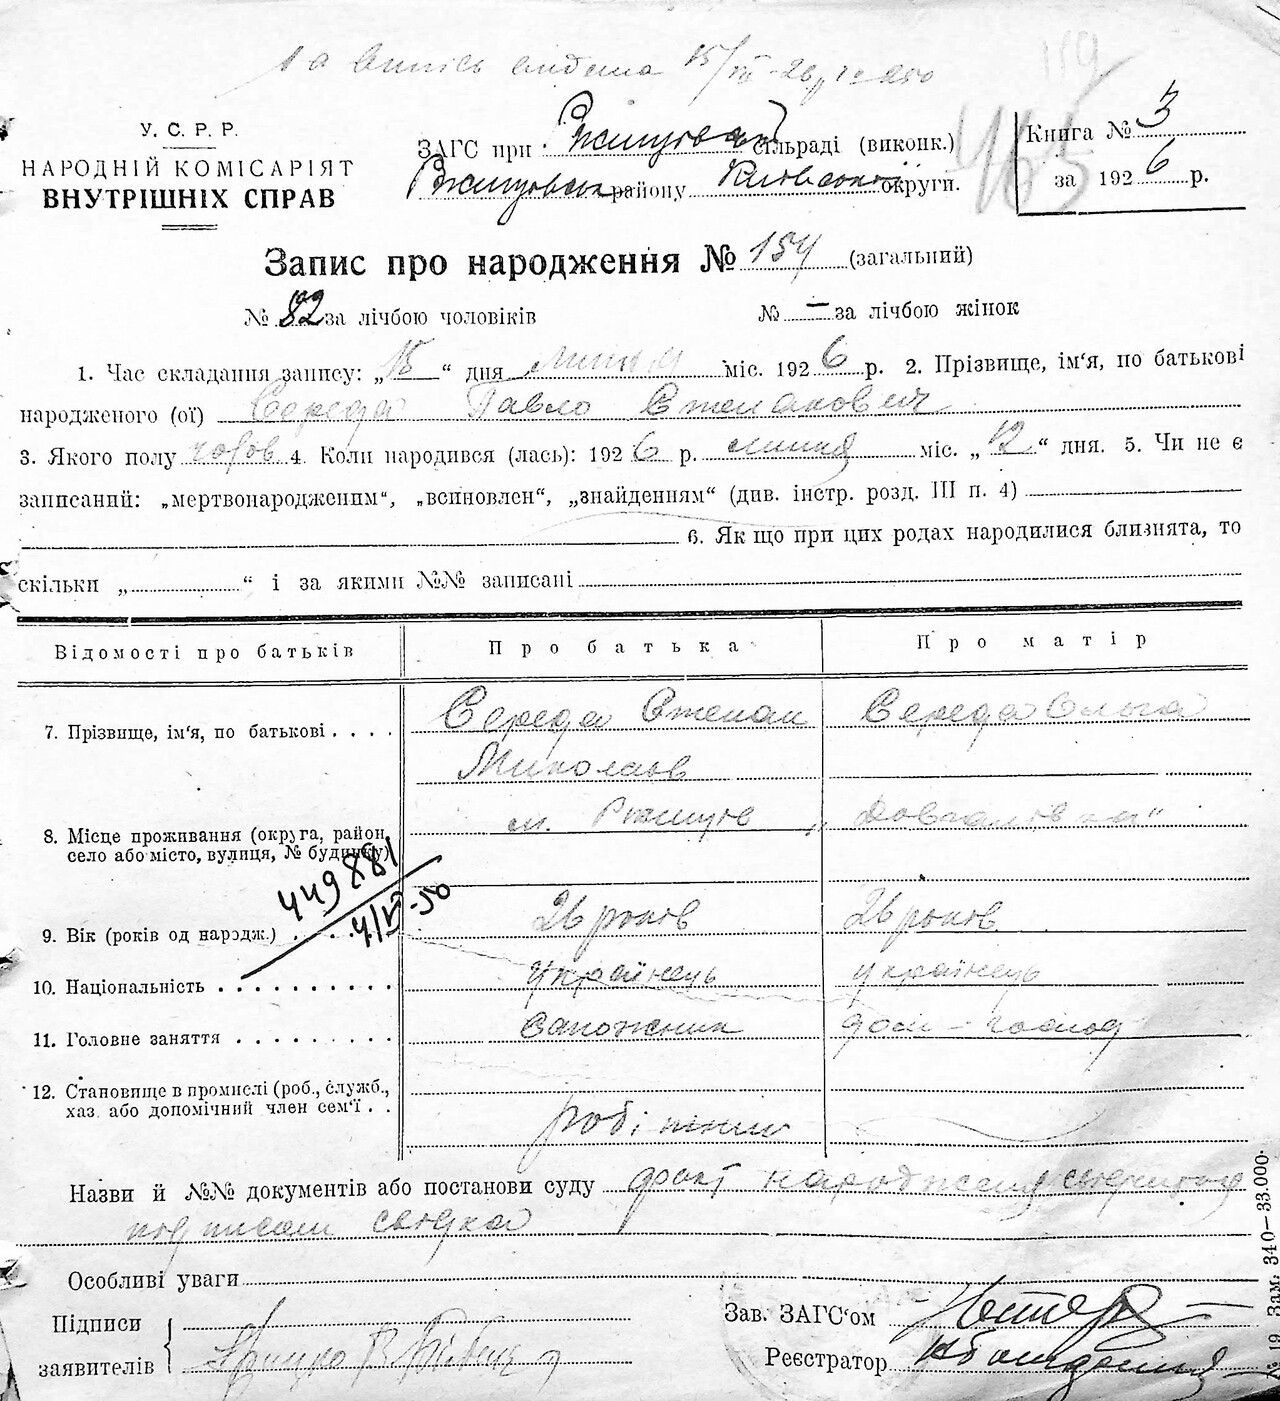 159
465
У. С. Р. Р.
НАРОДНІЙ КОМІСАРІЯТ
ВНУТРІШНІХ СПРАВ
ЗАГС при Ржищівській сільраді (виконк.)
Ржищівськ району Київської округи.
Книга № 3
за 1926 р.
Запис про народження № 154 (загальний)
№ 82 за лічбою чоловіків № — за лічбою жінок
1. Час складання запису: „15“ дня липня міс. 1926 р. 2. Прізвище, ім'я, по батькові
народженого (ої) Середа Павло Степанович
3. Якого полу чолов 4. Коли народився (лась): 1926 р. липня міс. „12“ дня. 5. Чи не є
записаний: „мертвонародженим“, „всиновлен“, „знайденням“ (див. інстр. розд. III п. 4)
6. Як що при цих родах народилися близнята, то
скільки „ “ і за якими №№ записані
Відомості про батьків Про батька Про матір
7. Прізвище, ім'я, по батькові . . . . Середа Степан Середа Ольга
Миколаїв
8. Місце проживання (округа, район, м. Ржищів „Довгалівка“
село або місто, вулиця, № будинку)
449881
4/IV-50
9. Вік (років од народж.) 26 років 26 років
10. Національність . . . . . . . . . . українець українець
11. Головне заняття . . . . . . . . . сапожник дом-господ
12. Становище в промислі (роб., служб.,
хаз. або допомічний член сем'ї . . робітник
Назви й №№ документів або постанови суду факт народження
підписом свідка
Особливі уваги
Підписи
заявителів
Зав. ЗАГС'ом
Реєстратор
№ 19 Зам. 340—33.000.